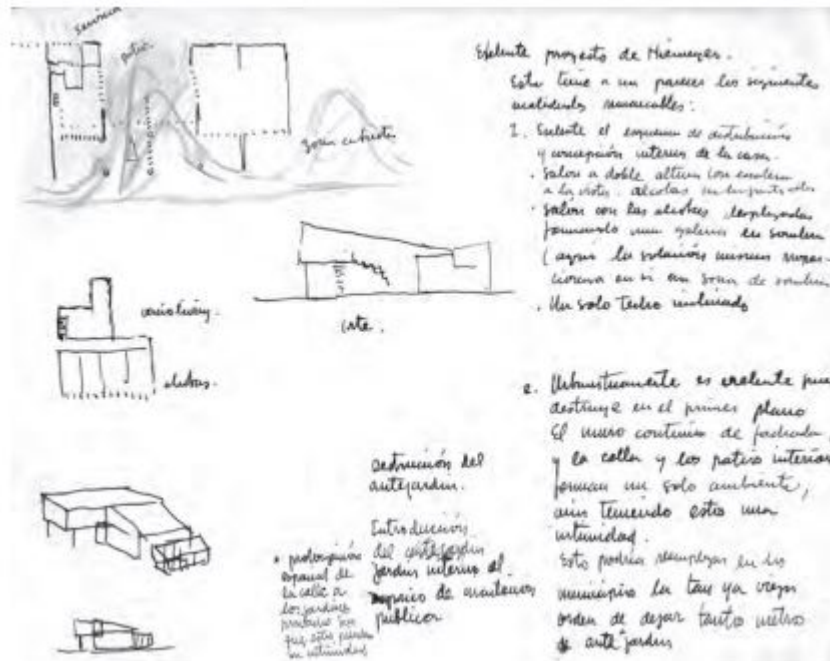 servicio
patio
zona cubierta
Exelente proyecto de Niemeyer.
Esta tiene a mi parecer los siguientes
remarcables:
1. Exelente el esquema de distribución
y concepción interna de la casa.
. Salon a doble altura con escalera
a la vista. alcobas
. Salon con las alcobas desplazadas
formando una galeria en sombra
(aqui la solución misma
en si un zona de sombra
. Un solo techo inclinado
corte.
alcobas.
2. Urbanisticamente es exelente pues
destruye en el primer plano
el muro continuo de fachada,
y la calle y los patios interiores
forman un solo ambiente,
aun teniendo estos una
intimidad.
Esto podria reemplazar en los
municipios la tan ya vieja
orden de dejar tanto metro
de ante jardin
destrucción del
antejardin.
Introducción
del
jardin interno al
espacio de
publicos
* prolongación
espacial de
la calle a
los jardines
que estos pierdan
su intimidad